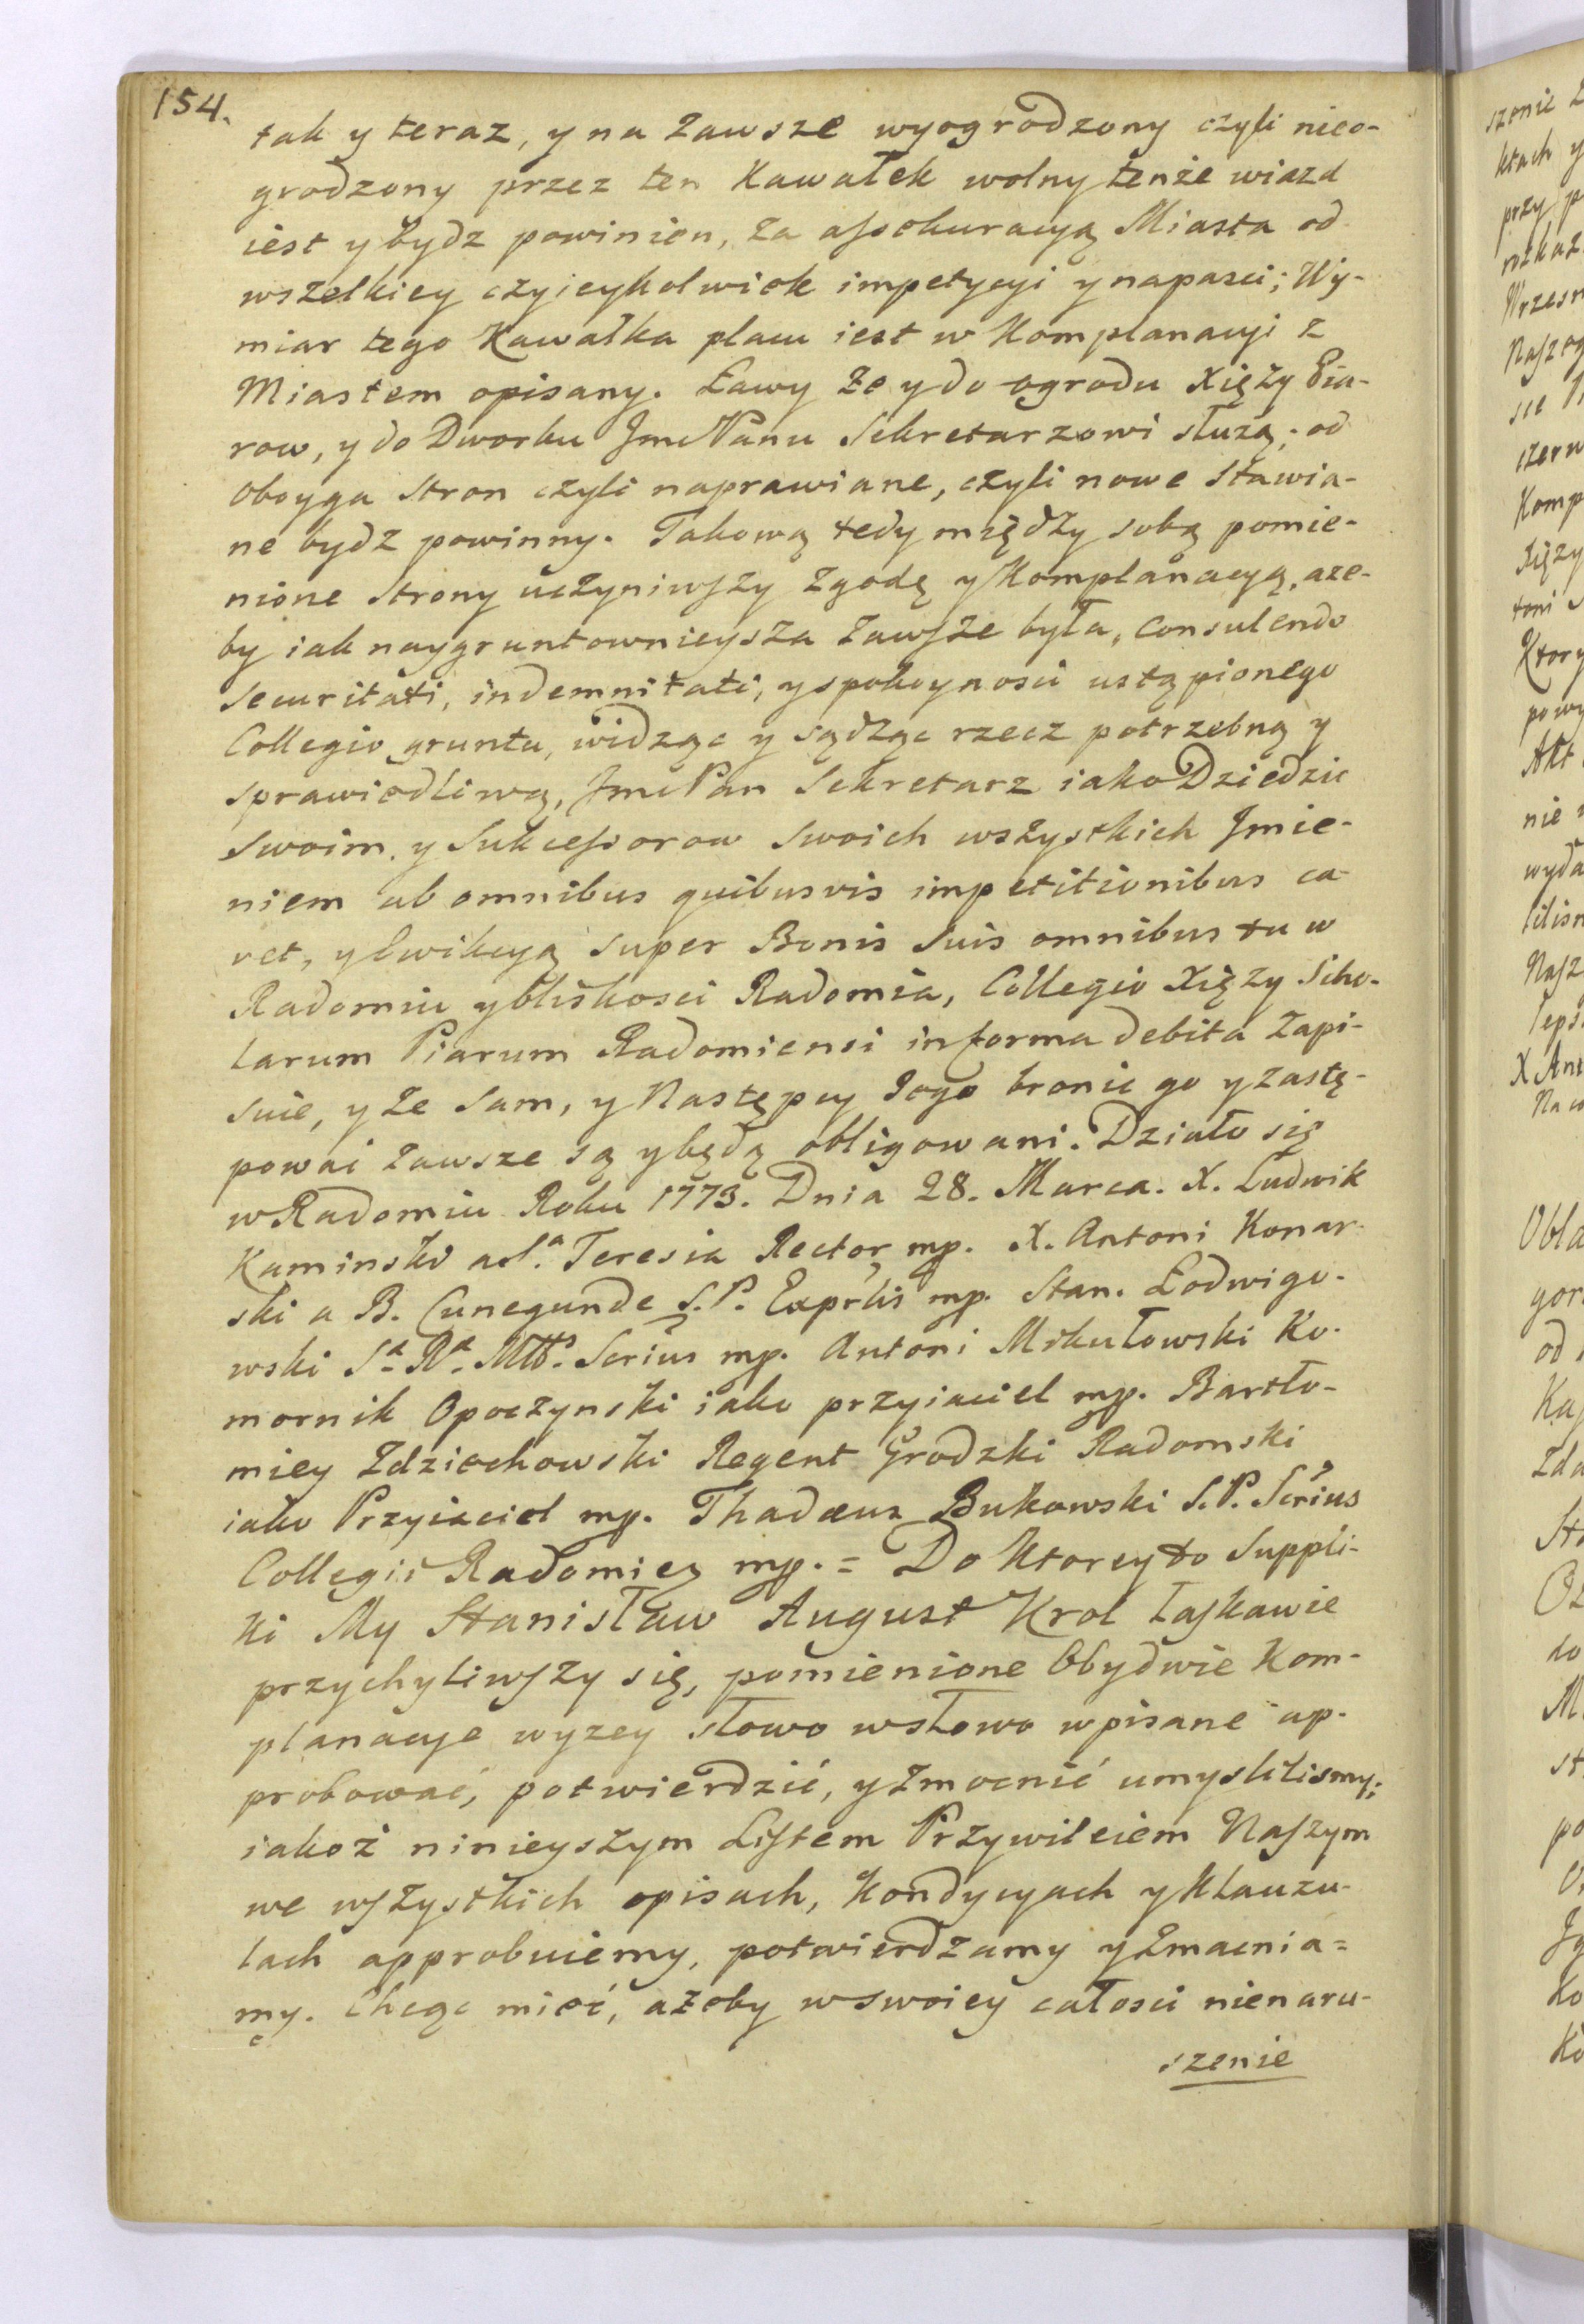 154.
tak y teraz, y na zawsze wyogrodzony czyli nieo-
grodzony przez ten Kawałek wolny tenże wiazd
iest y bydz powinien, za assekuracyą Miasta od
wszelkiey czyieykolwiek impetycyi y napasci; Wy-
miar tego Kawałka placu iest w Komplanacyi z
Miastem opisany. Ławy że y do ogrodu Xięży Pia-
row, y do Dworku Jmc Panu Sekretarzowi służą; od
oboyga stron czyli naprawiane, czyli nowe stawia-
ne bydz powinny. Takową tedy między sobą pomie-
nione strony uczyniwszy zgodę y Komplanacyą, aze-
by iak naygruntownieysza zawsze była, consulendo
securitati, indemnitati, y spokoynosci ustąpionego
Collegio gruntu, widząc y sądząc rzecz potrzebną y
sprawiedliwą, Jmc Pan Sekretarz iako Dziedzic
swoim, y Sukcessorow swoich wszystkich Jmie-
niem ab omnibus quibusvis impetitionibus ca-
vet, y Ewikcyą super Bonis suis omnibus tu w
Radomiu y bliskosci Radomia, Collegio Xięży Scho-
larum Piarum Radomiensi in forma debita zapi-
suie, y że sam, y Następcy Jego bronic go y zastę-
powac zawsze są y będą obligowani. Działo się
w Radomiu Roku 1773. Dnia 28. Marca. X. Ludwik
Kaminski a S.ª Teresia Rector mp. X. Antoni Konar-
ski a B. Cunegunde S.P. Exprlis mp. Stan. Łodwigo-
wski Sª Rª Mtts Scrius mp. Antoni Mikułowski Ko-
mornik Opoczynski iako przyiaciel mp. Bartło-
miey Zdziechowski Regent Grodzki Radomski
iako Przyiaciel mp. Thadæus Bukowski S.P. Scrius
Collegii Radomien mp. = Do Ktorey to Suppli-
ki My Stanisław August Krol łaskawie
przychyliwszy się, pomienione Obydwie Kom-
planacye wyzey słowo w słowo wpisane ap-
probować, potwierdzić, y zmocnić umyslilismy;
iakoż ninieyszym Listem Przywileiem Naszym
we wszystkich opisach, Kondycyach y Klauzu-
lach approbuiemy, potwierdzamy y zmacnia=
my. Chcąc mieć, ażeby w swoiey całosci nienaru-
szenie